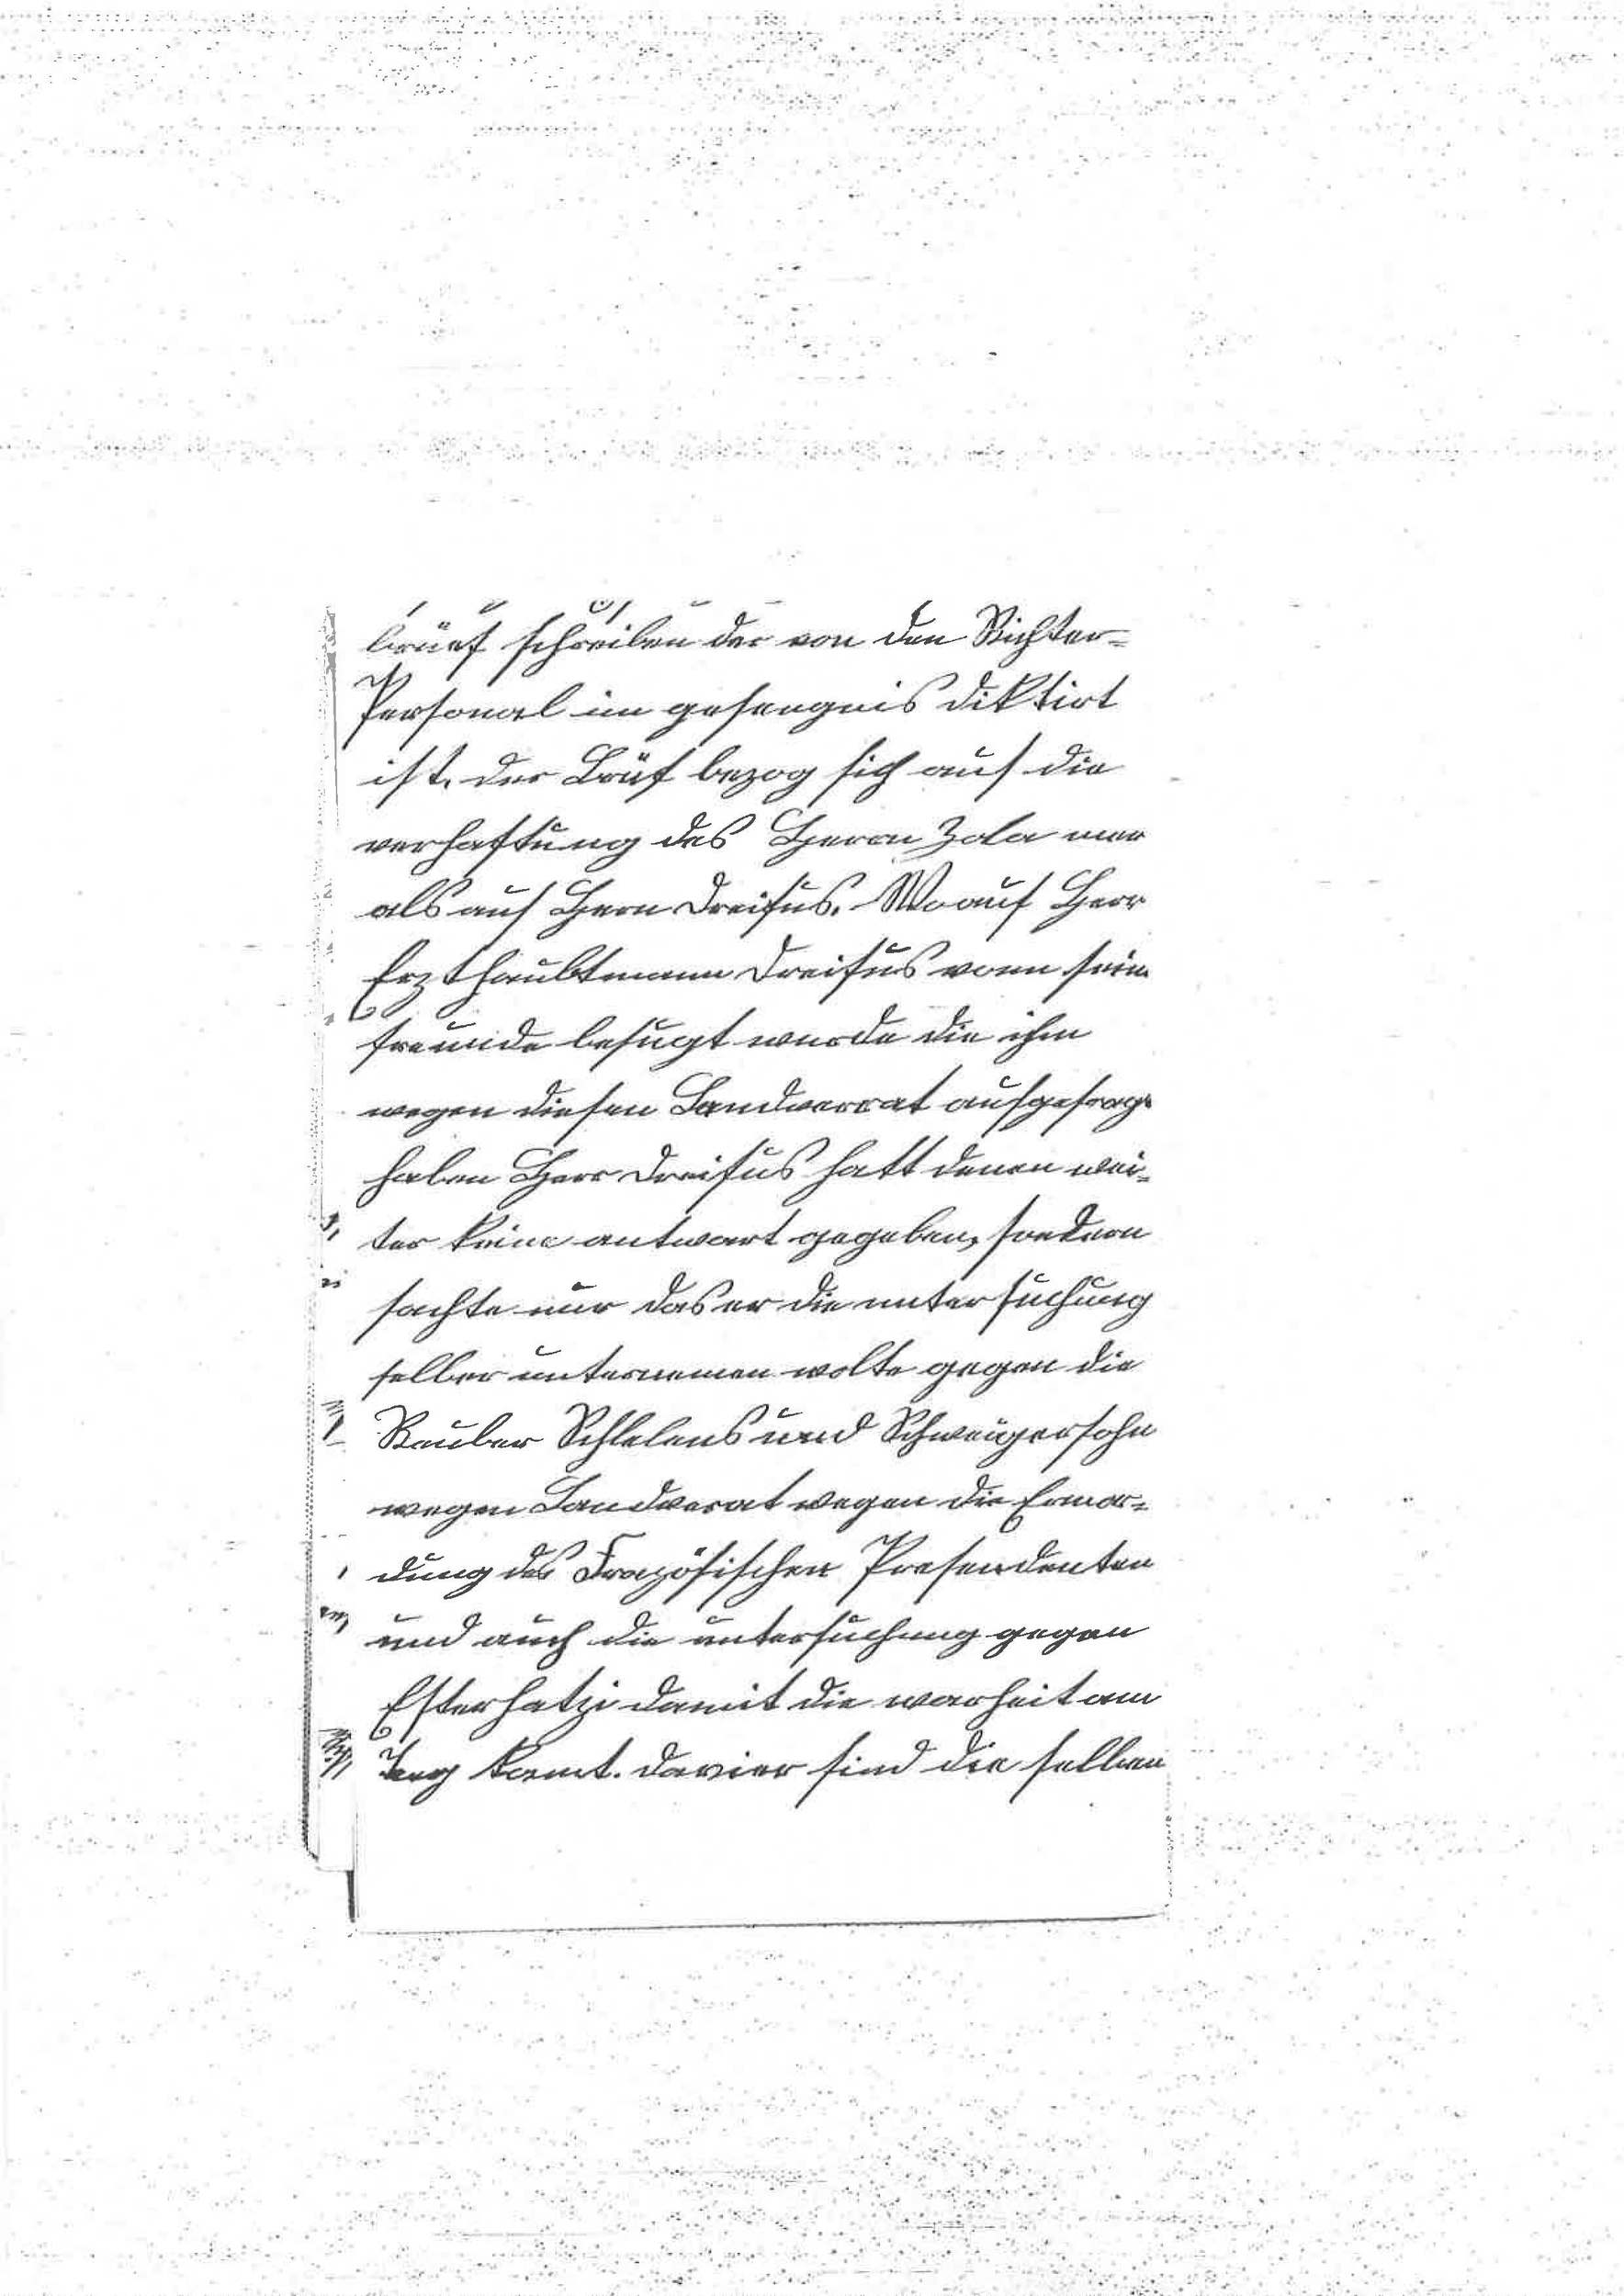 brüef schreiben der von den Richter=
Personal im gefengnis diktirt
ist. der Brüf bezog sich auf die
verhaftung des Herrn Zola mer
als auf Hern Dreifus. Woauf Herr
Erzthaubtmann Dreifus vonn sein
freunde befugt wurde die ihm
wegen diesen Landverrat aufgefrag
haben Herr Dreifus hatt denen wei=
ter keine antwort gegeben, sondern
sachte nur das er die untersuchung
selber unternemen wolte gegen die
Rauber und Schweigersohn
wegen Landverat wegen die Ermor=
dung des Französischen Presendenten
und auch die untersuchung gegen
Esterhatzi damit die warheit am
Tag komt. davier sind die selben